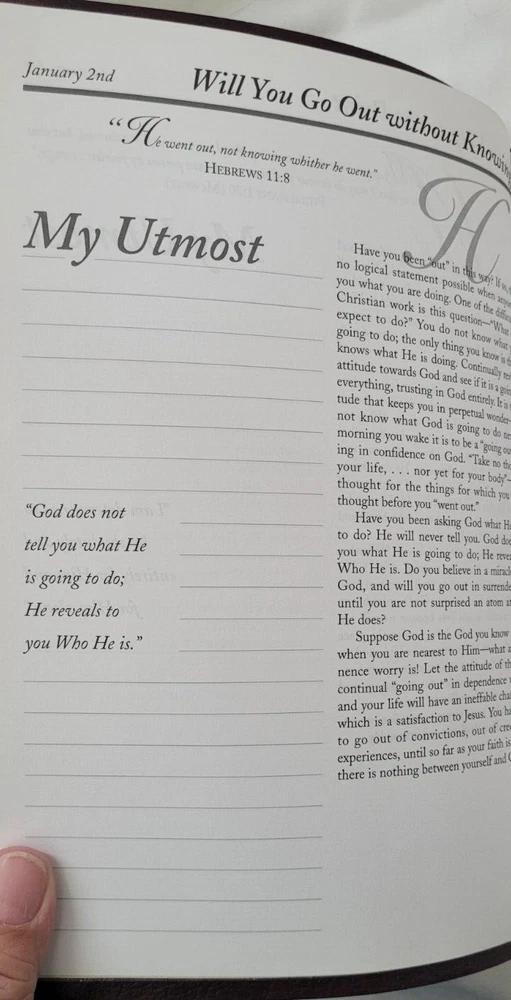 January 2nd
Will You Go Out without Knowing
“He went out, not knowing whither he went.”
HEBREWS 11:8
My Utmost
“God does not
tell you what He
is going to do;
He reveals to
you Who He is.”
H
Have you been “out” in this way? If so,
no logical statement possible when
you what you are doing. One of the
Christian work is this question—“What
expect to do?” You do not know what
going to do; the only thing you know is
knows what He is doing. Continually
attitude towards God and see if it is a
everything, trusting in God entirely. It is
tude that keeps you in perpetual wonder—
not know what God is going to do
morning you wake it is to be a “going
ing in confidence on God. “Take no
your life, . . . nor yet for your body”—
thought for the things for which you
thought before you “went out.”
Have you been asking God what He
to do? He will never tell you. God
you what He is going to do; He
Who He is. Do you believe in a
God, and will you go out in
until you are not surprised an atom
He does?
Suppose God is the God you know
when you are nearest to Him—what
nence worry is! Let the attitude of
continual “going out” in dependence
and your life will have an ineffable
which is a satisfaction to Jesus. You
to go out of convictions, out of
experiences, until so far as your faith is
there is nothing between yourself and